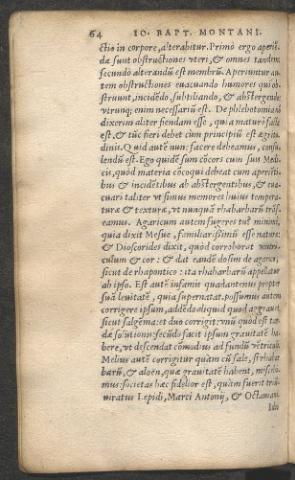 64 IO. BAPT. MONTANI.
ctio in corpore, alterabitur. Primò ergo aperiẽ-
dæ sunt obstructiones vteri, & omnes tandem:
secundò alterandũ est membrũ. Aperiuntur au-
tem obstructiones euacuando humores qui ob-
struunt, incidẽdo, subtiliando, & abstergendo:
vtrunq; enim necessariũ est. De phlebotomia
dixerim aliter fiendam esse, quia maturè falli
est, & tũc fieri debet cùm principiũ est ægritu
dinis. Quid autẽ nunc facere debeamus, consu
lendũ est. Ego quidẽ sum cõcors cum suis Medi-
cis, quòd materia cõcoqui debeat cum aperiẽti-
bus & incidẽtibus ab abstergentibus, & eua-
cuari taliter vt simus memores huius tempera-
turæ & texturæ, vt nunquã rhabarbarũ
eamus. Agaricum autem fugeres tuẽ minimi,
quia dixit Mesue, familiarissimũ esse naturæ:
& Dioscorides dixit, quòd corroborat ventri-
culum & cor: & dat eandẽ dosim de agarico,
sicut de rhapontico: ita rhabarbarũ appellatur
ab ipso. Est autẽ infamis quadantenus propter
suã leuitatẽ, quia supernatat. possumus autem
corrigere ipsum, addẽdo aliquid quod aggrauet,
sicut salgẽma: et duo corrigit: vnũ quòd
solutioni: secũdò facit ipsum grauitatẽ ha-
bere, vt descendat cõmodius ad fundũ vẽtriculi.
Melius autẽ corrigitur quàm cũ sale, si rhabar
barũ, & aloën, quæ grauitatẽ habent, miscebi-
mus: societas hæc fidelior est, quàm fuerit triũ-
uiratus Lepidi, Marci Antonij, & Octauian.